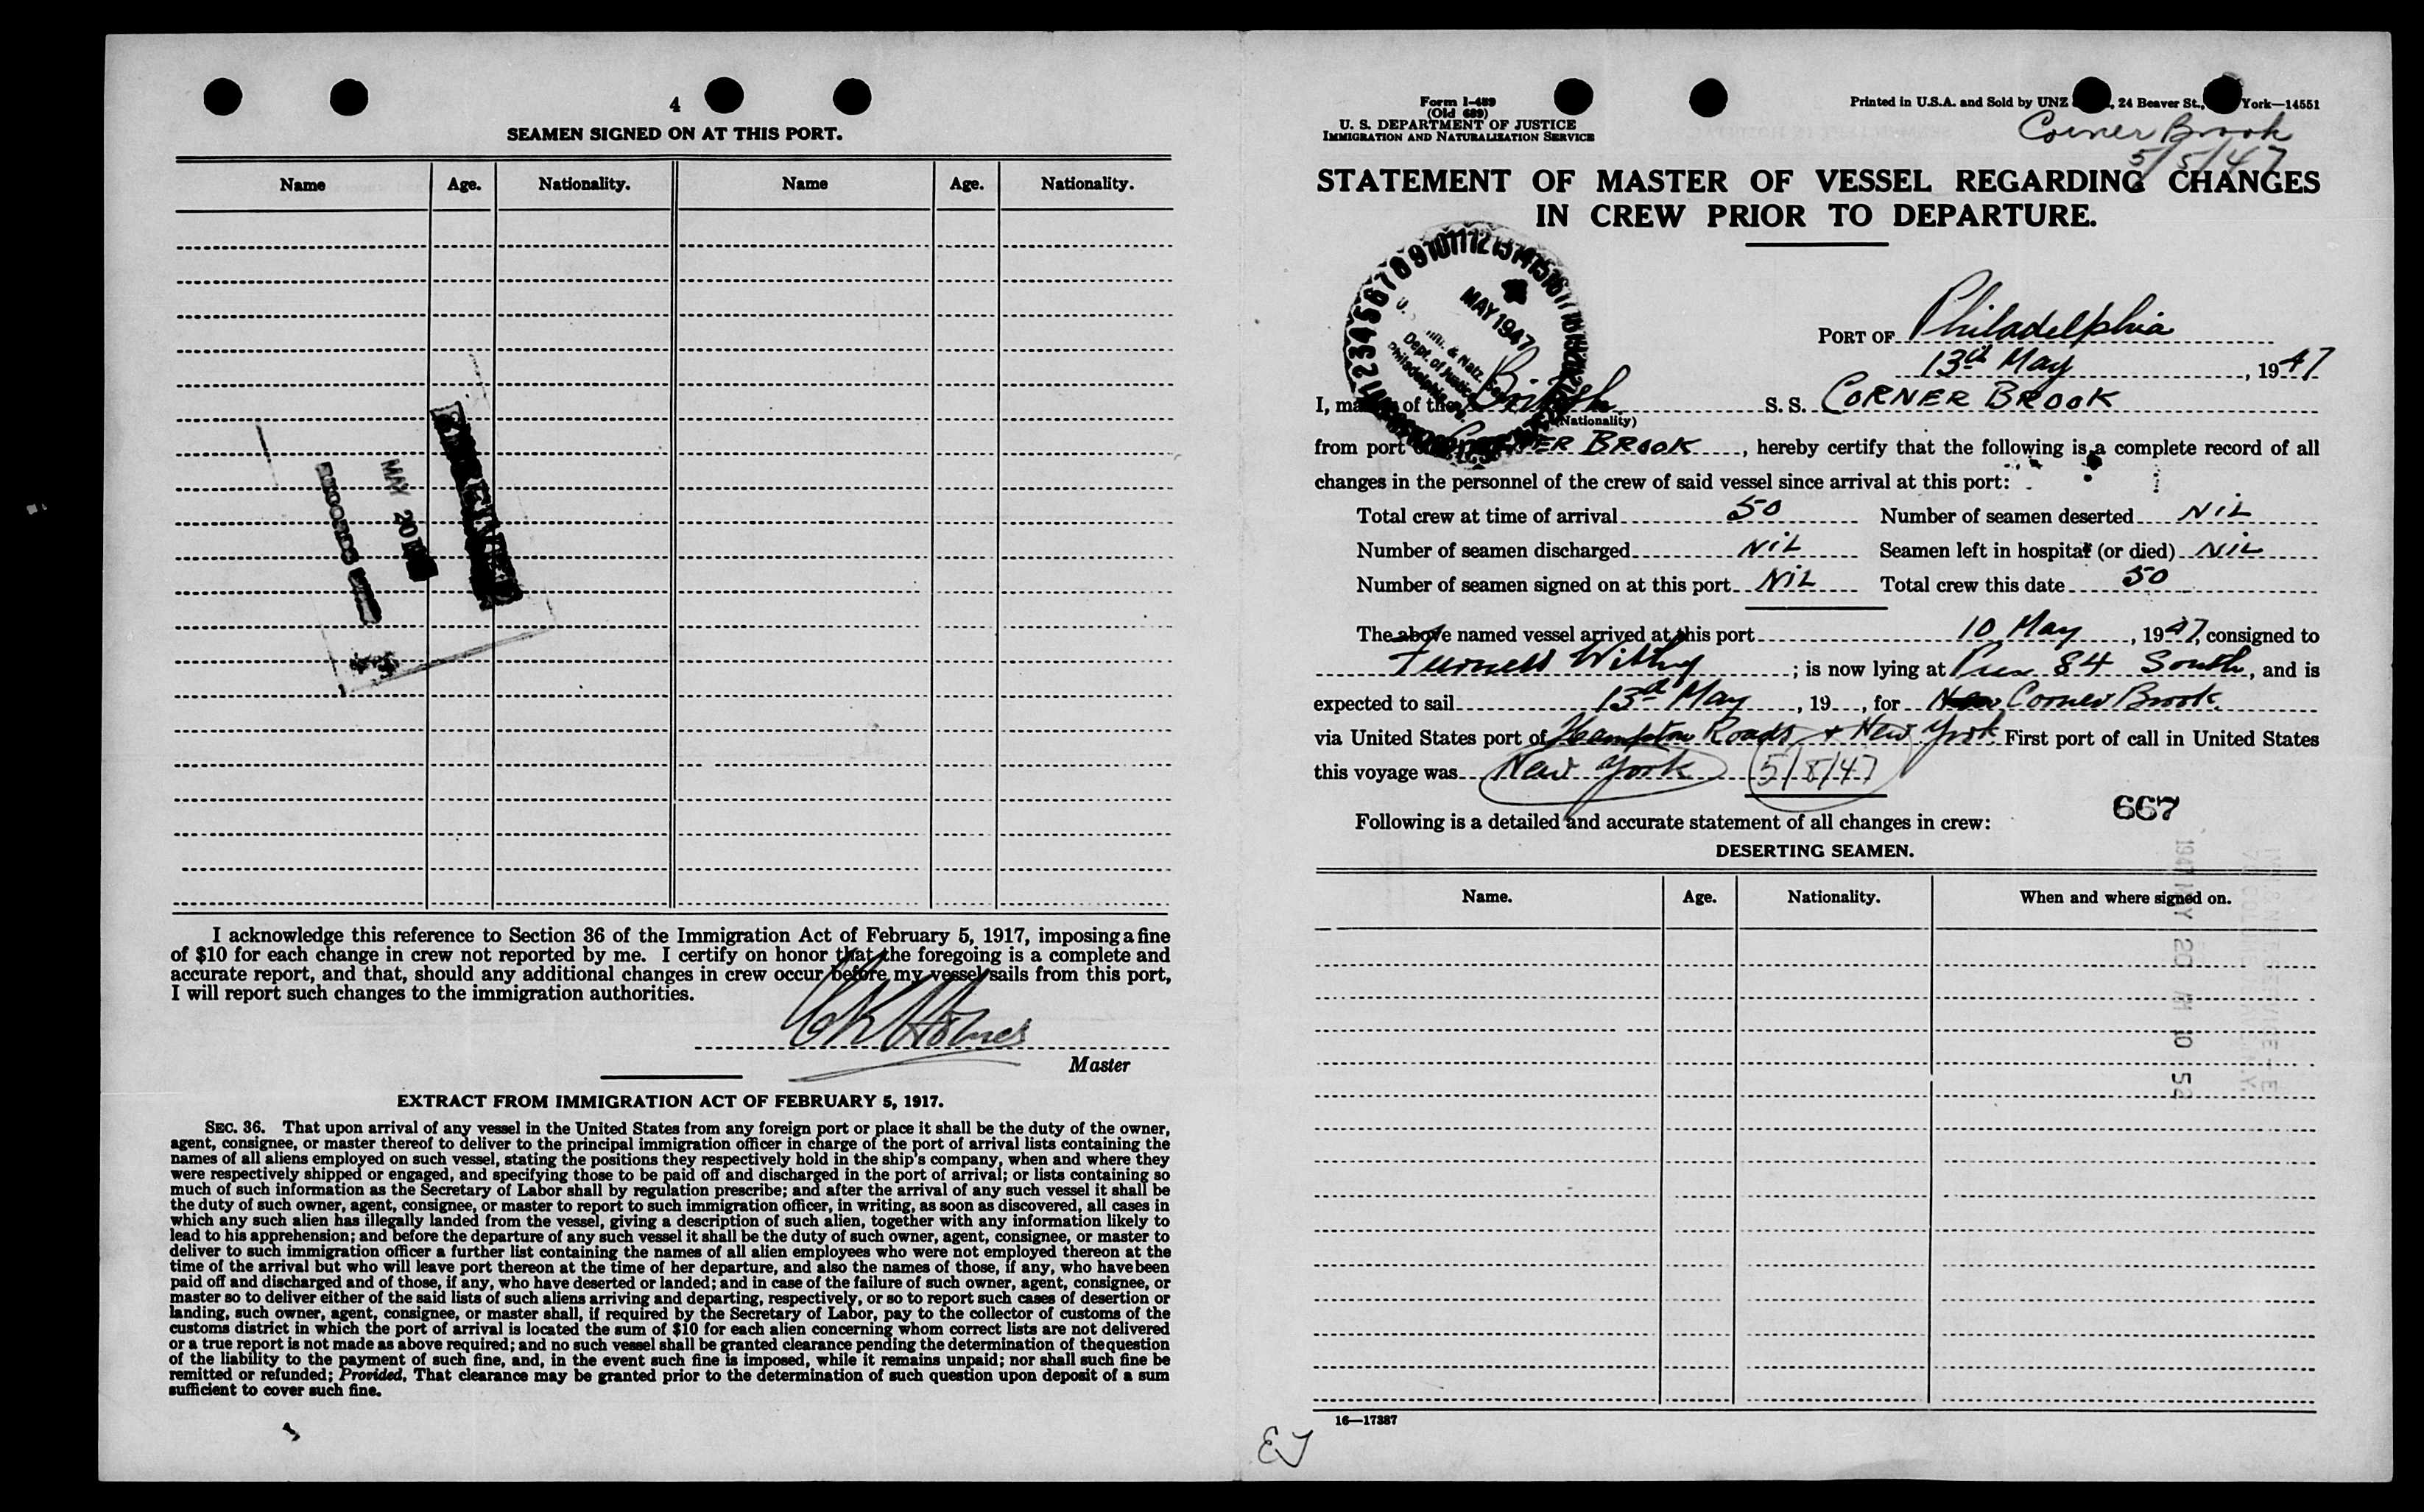 4
SEAMEN SIGNED ON AT THIS PORT.
Name Age. Nationality. Name Age. Nationality.
MAY 20
RECORDS
I acknowledge this reference to Section 36 of the Immigration Act of February 5, 1917, imposing a fine
of $10 for each change in crew not reported by me. I certify on honor that the foregoing is a complete and
accurate report, and that, should any additional changes in crew occur before my vessel sails from this port,
I will report such changes to the immigration authorities.
Holmes
Master
EXTRACT FROM IMMIGRATION ACT OF FEBRUARY 5, 1917.
SEC. 36. That upon arrival of any vessel in the United States from any foreign port or place it shall be the duty of the owner,
agent, consignee, or master thereof to deliver to the principal immigration officer in charge of the port of arrival lists containing the
names of all aliens employed on such vessel, stating the positions they respectively hold in the ship's company, when and where they
were respectively shipped or engaged, and specifying those to be paid off and discharged in the port of arrival; or lists containing so
much of such information as the Secretary of Labor shall by regulation prescribe; and after the arrival of any such vessel it shall be
the duty of such owner, agent, consignee, or master to report to such immigration officer, in writing, as soon as discovered, all cases in
which any such alien has illegally landed from the vessel, giving a description of such alien, together with any information likely to
lead to his apprehension; and before the departure of any such vessel it shall be the duty of such owner, agent, consignee, or master to
deliver to such immigration officer a further list containing the names of all alien employees who were not employed thereon at the
time of the arrival but who will leave port thereon at the time of her departure, and also the names of those, if any, who have been
paid off and discharged and of those, if any, who have deserted or landed; and in case of the failure of such owner, agent, consignee, or
master so to deliver either of the said lists of such aliens arriving and departing, respectively, or so to report such cases of desertion or
landing, such owner, agent, consignee, or master shall, if required by the Secretary of Labor, pay to the collector of customs of the
customs district in which the port of arrival is located the sum of $10 for each alien concerning whom correct lists are not delivered
or a true report is not made as above required; and no such vessel shall be granted clearance pending the determination of the question
of the liability to the payment of such fine, and, in the event such fine is imposed, while it remains unpaid; nor shall such fine be
remitted or refunded; Provided, That clearance may be granted prior to the determination of such question upon deposit of a sum
sufficient to cover such fine.
Form I-489
(Old 689)
U. S. DEPARTMENT OF JUSTICE
IMMIGRATION AND NATURALIZATION SERVICE
Printed in U.S.A. and Sold by UNZ , 24 Beaver St., York—14551
Corner Brook
5/5/47
STATEMENT OF MASTER OF VESSEL REGARDING CHANGES
IN CREW PRIOR TO DEPARTURE.
MAY 1947
& Natz.
Dept. of Justice
Philadelphia
PORT OF Philadelphia
13th May, 1947
I, master of the British S. S. CORNER BROOK
(Nationality)
from port CORNER BROOK, hereby certify that the following is a complete record of all
changes in the personnel of the crew of said vessel since arrival at this port:
Total crew at time of arrival 50 Number of seamen deserted NIL
Number of seamen discharged NIL Seamen left in hospital (or died) NIL
Number of seamen signed on at this port NIL Total crew this date 50
The above named vessel arrived at this port 10 May, 1947, consigned to
Furness Withy; is now lying at Pier 84 South, and is
expected to sail 13th May, 19 , for New Corner Brook.
via United States port of Hampton Roads + New York First port of call in United States
this voyage was New York 5/8/47
667
Following is a detailed and accurate statement of all changes in crew:
DESERTING SEAMEN.
Name. Age. Nationality. When and where signed on.
1947 MAY 20 AM 10 52
16—17387
EJ